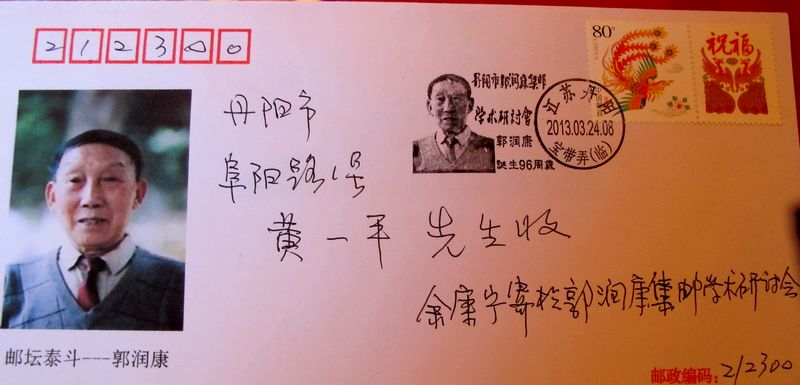 212300
80分
祝福
丹阳市郭润康集邮
学术研讨會
郭润康
诞生96周岁
江苏丹阳
2013.03.24.08
宝带弄(临)
丹阳市
阜阳路1号
黄一平 先生收
余康宁寄于郭润康集邮学术研讨会
邮坛泰斗---郭润康
邮政编码：212300